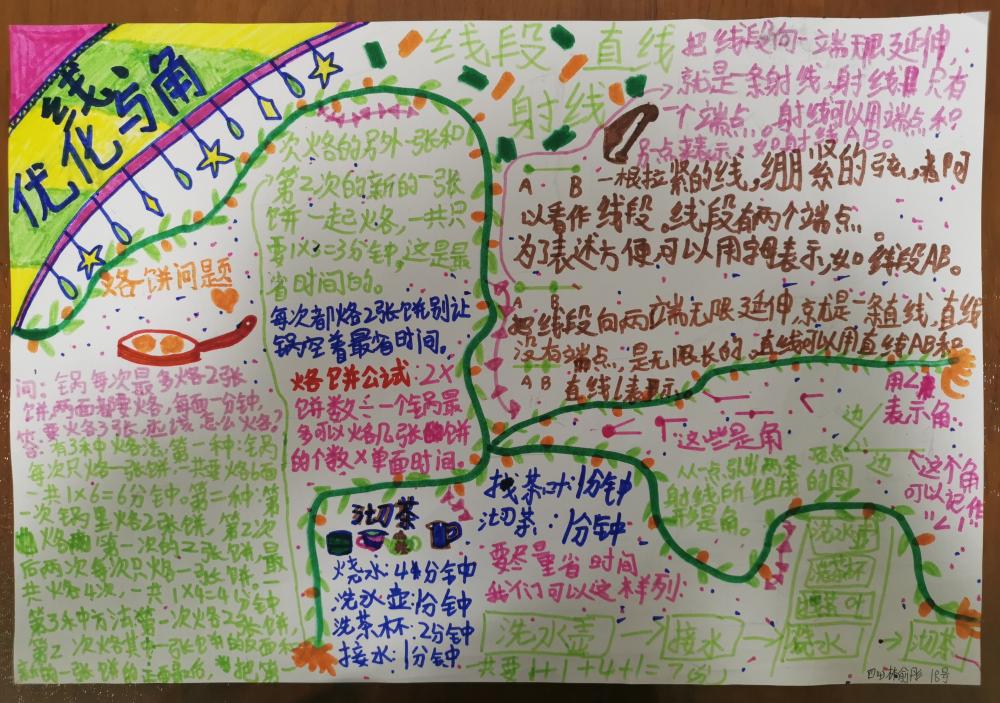 优化
线与角
烙饼问题
问：锅每次最多烙2张
饼，两面都要烙，每面一分钟，
要烙3张，应该怎么烙？
答：有3种烙法：第一种：锅
每次只烙一张饼，一共要烙6面
一共1×6=6分钟，第二种：第
一次锅里烙2张饼，第2次
烙第一次的2张饼，最
后两次每次只烙一张饼，一
共烙4次，一共1×4=4分钟
第3种方法：第一次烙2张饼，
第2次烙其中一张饼的反面和
新的一张饼的正面，最后把第
一次烙的另外一张和
第2次的新的一张
饼一起烙，一共只
要1×3=3分钟，这是最
省时间的。
每次都烙2张饼别让
锅空着最省时间。
烙饼公式：2×
饼数÷一个锅最
多可以烙几张饼
的个数×单面时间。
线段 直线
射线
把线段向一端无限延伸，
就是一条射线，射线只有
一个端点。射线可以用端点和
另一点来表示，如射线AB。
A B 一根拉紧的线，绷紧的弦，都可
以看作线段。线段有两个端点。
为了表述方便，可以用字母表示，如线段AB。
A B
把线段向两端无限延伸，就是一条直线，直线
没有端点，是无限长的，直线可以用直线AB和
A B 直线l表示。
这些是角
从一点引出两条
射线所组成的图
形是角。
用∠
表示角。
边
顶点
边
这个角
可以记作
“∠1
沏茶
烧水：4分钟
洗水壶：1分钟
洗茶杯：2分钟
接水：1分钟
找茶叶：1分钟
沏茶：1分钟
要尽量省时间
我们可以这样列：
洗水壶 → 接水 → 烧水 → 沏茶
洗水壶
洗茶杯
找茶叶
共要1+1+4+1=7(分)
18号